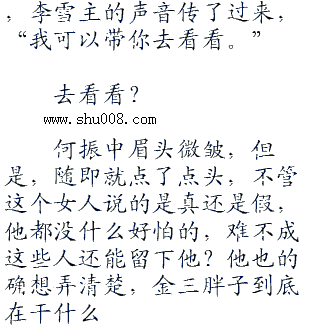 ，李雪主的声音传了过来，
“我可以带你去看看。”
去看看？
www.shu008.com
何振中眉头微皱，但
是，随即就点了点头，不管
这个女人说的是真还是假，
他都没什么好怕的，难不成
这些人还能留下他？他也的
确想弄清楚，金三胖子到底
在干什么